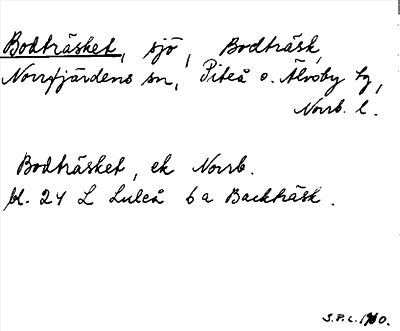 Bodträsket, sjö, Bodträsk,
Norrfjärdens sn, Piteå o. Älvsby tg,
Norrb. l.
Bodträsket, ek Norrb.
bl. 24 L Luleå 6a Backträsk.
S.P.L. 1960.